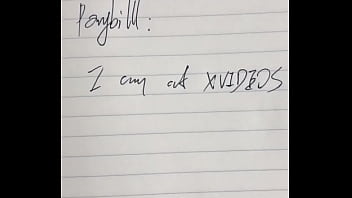 Pongbill:
I am at XVIDEOS